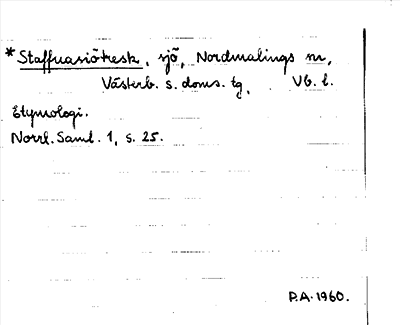 *Staffuasiötresk, sjö, Nordmalings sn,
Västerb. s. doms. tg, Vb. l.
Etymologi.
Norrl. Saml. 1, s. 25.
P.A. 1960.